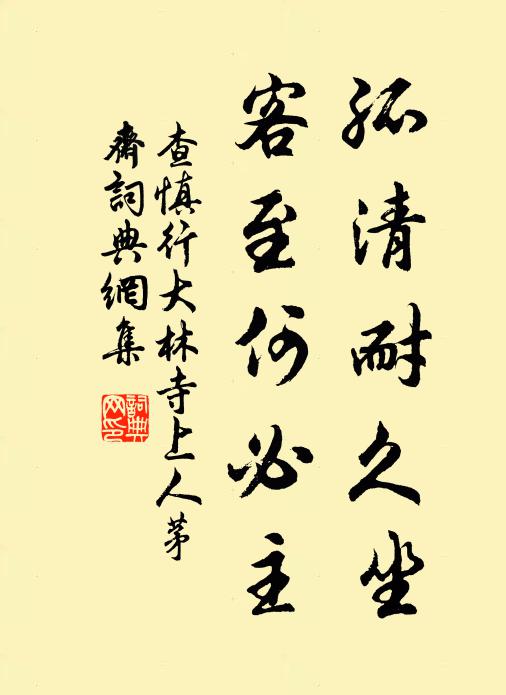 孤清耐久坐
客至何必主
查慎行大林寺上人茅
齋詞典網集
詞典
网印